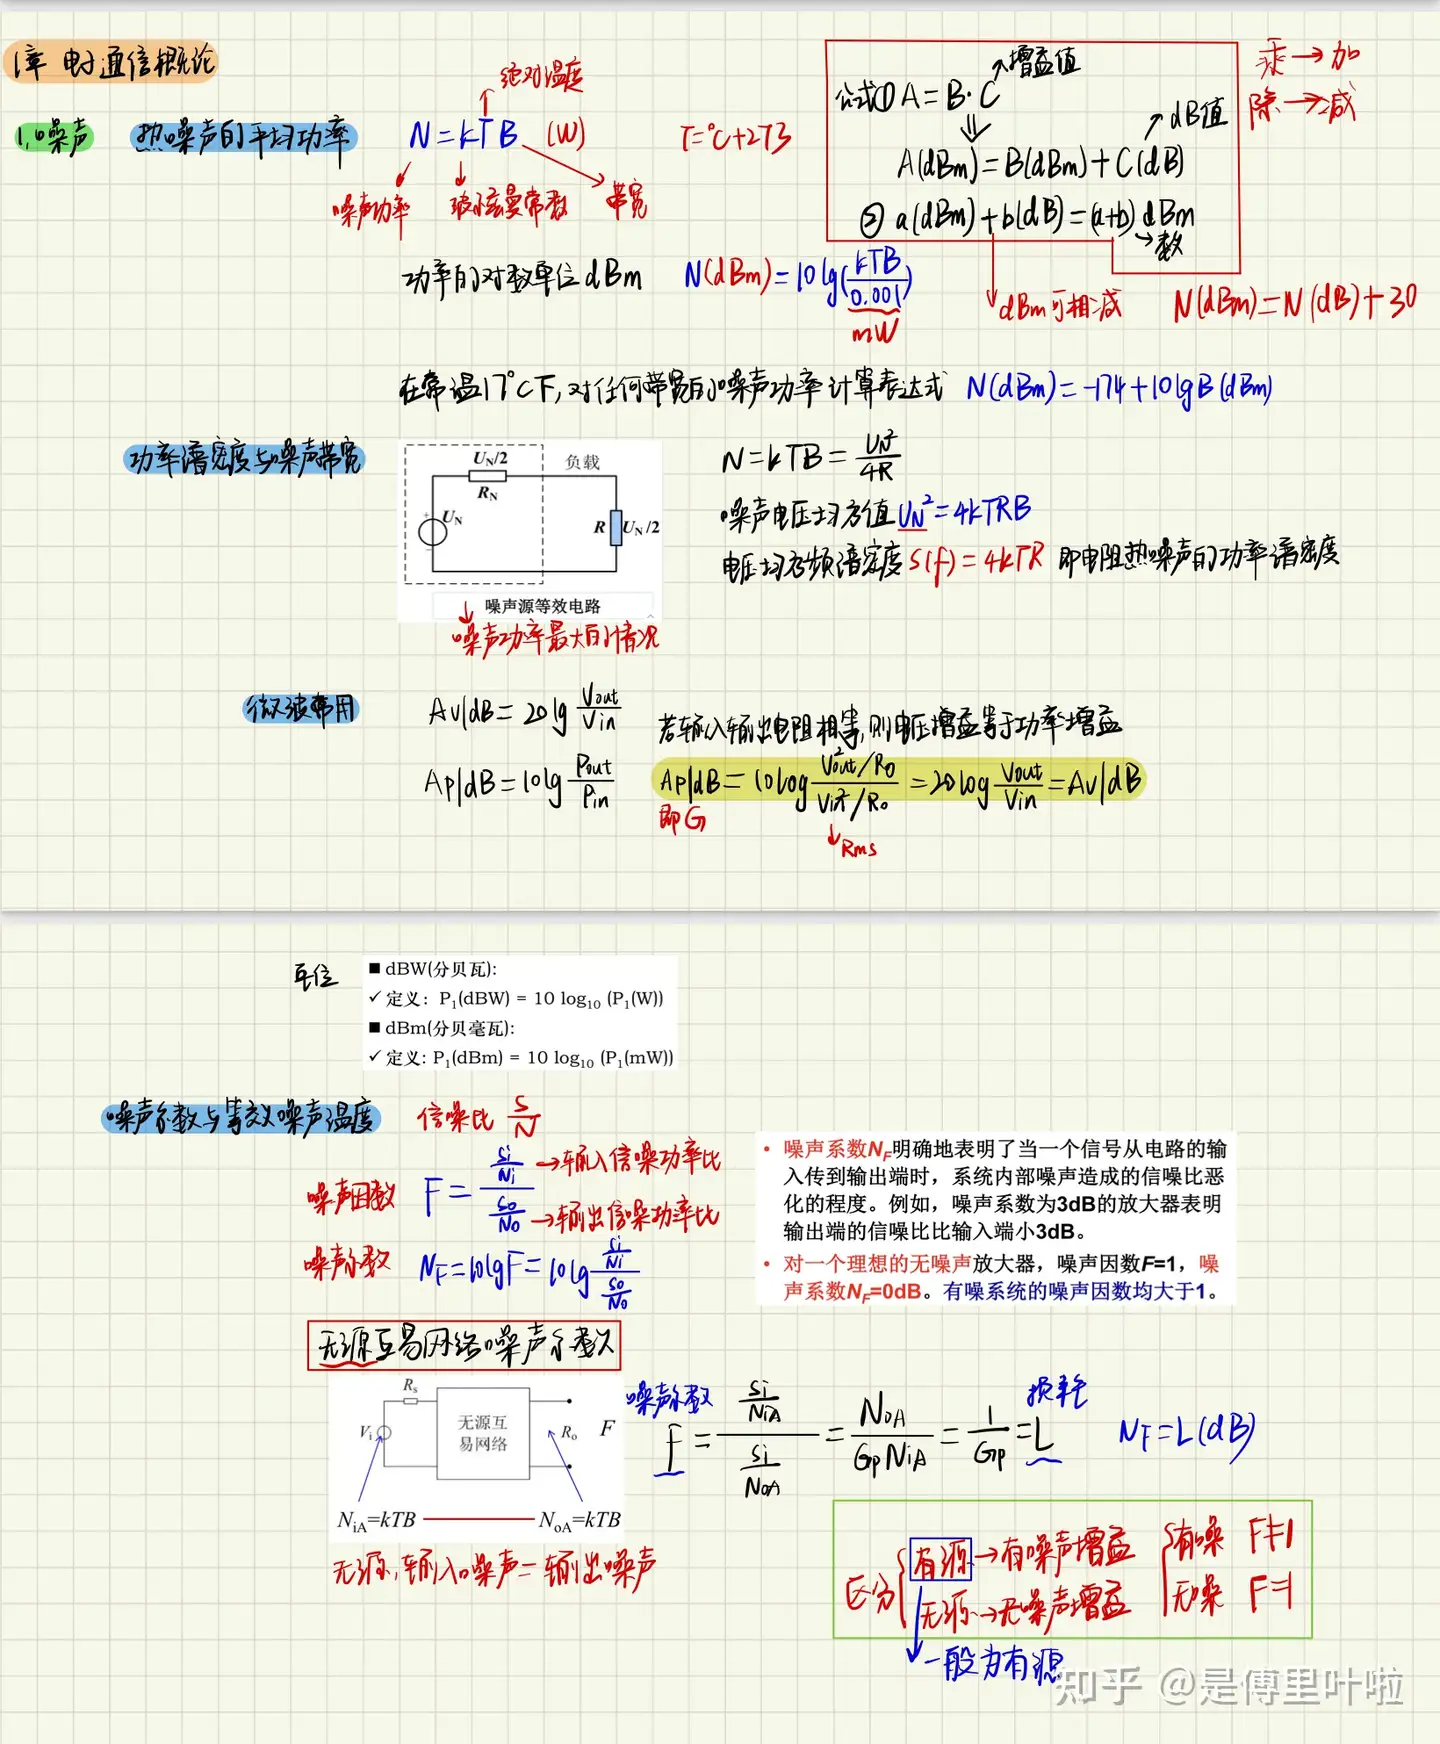 1章 电子通信概论
1.噪声 热噪声的平均功率
绝对温度
N=kTB (W)
T=℃+273
噪声功率 玻尔兹曼常数 带宽
增益值
公式① A=B·C
⇓
dB值
A(dBm)=B(dBm)+C(dB)
② a(dBm)+b(dB)=(a+b)dBm
数
乘→加
除→减
功率的对数单位dBm N(dBm)=10lg(kTB/0.001)
mW
dBm可相减 N(dBm)=N(dB)+30
在常温17℃下,对任何带宽的噪声功率计算表达式 N(dBm)=-174+10lgB(dBm)
功率谱密度与噪声带宽
U_N/2 负载
R_N
U_N
R U_N/2
噪声源等效电路
噪声功率最大的情况
N=kTB=U_N²/4R
噪声电压均方值U_N²=4kTRB
电压均方频谱密度S(f)=4kTR 即电阻热噪声的功率谱密度
微波常用 Av|dB=20lg Vout/Vin
若输入输出电阻相等,则电压增益等于功率增益
Ap|dB=10lg Pout/Pin
Ap|dB=10log (V²out/R₀)/(Vin²/R₀)=20log Vout/Vin=Av|dB
即G
Rms
单位
■ dBW(分贝瓦):
✓ 定义: P₁(dBW) = 10 log₁₀ (P₁(W))
■ dBm(分贝毫瓦):
✓ 定义: P₁(dBm) = 10 log₁₀ (P₁(mW))
噪声系数与等效噪声温度 信噪比 S/N
噪声因数 F=(Si/Ni)/(So/No)
→输入信噪功率比
→输出信噪功率比
噪声系数 N_F=10lgF=10lg (Si/Ni)/(So/No)
• 噪声系数N_F明确地表明了当一个信号从电路的输
入传到输出端时，系统内部噪声造成的信噪比恶
化的程度。例如，噪声系数为3dB的放大器表明
输出端的信噪比比输入端小3dB。
• 对一个理想的无噪声放大器，噪声因数F=1，噪
声系数N_F=0dB。有噪系统的噪声因数均大于1。
无源互易网络噪声系数
R_s
V_i
无源互
易网络
R_o F
N_iA=kTB N_oA=kTB
无源,输入噪声=输出噪声
噪声系数
损耗
F=(Si/N_iA)/(Si/N_oA)=N_oA/(GpN_iA)=1/Gp=L N_F=L(dB)
区分
有源→有噪声增益
无源→无噪声增益
有噪 F≠1
无噪 F=1
一般为有源
知乎 @是傅里叶啦